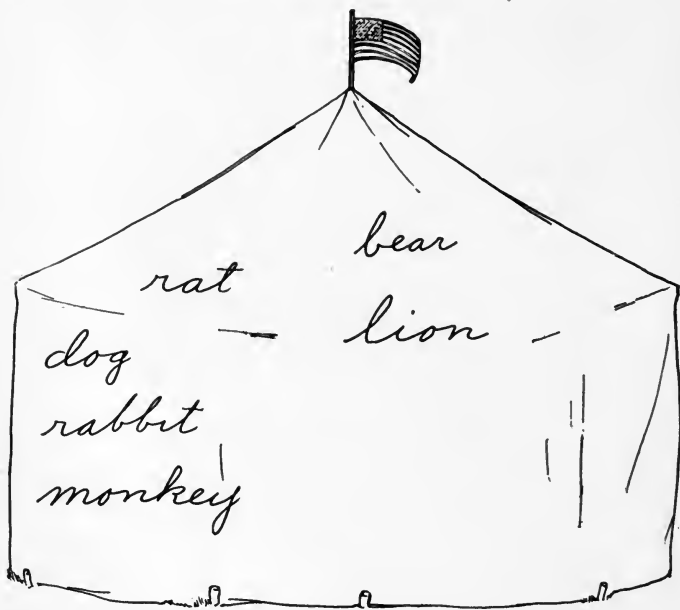 bear
rat
lion
dog
rabbit
monkey